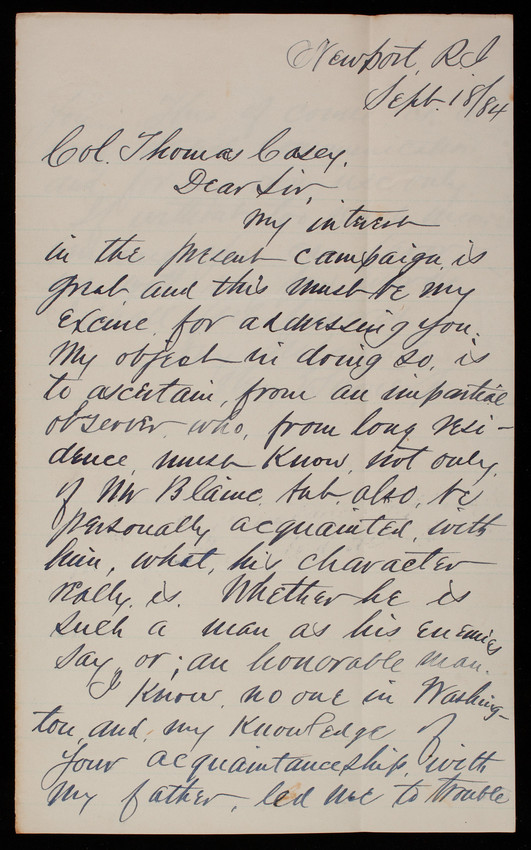 Newport, R.I
Sept. 18/84
Col. Thomas Casey,
Dear Sir,
My interest
in the present campaign, is
great and this must be my
excuse, for addressing you.
My object in doing so, is
to ascertain, from an impartial
observer, who, from long resi-
dence, must know, not only,
of Mr Blaine, but also, be
personally acquainted, with
him, what, his character
really, is. Whether he is
such a man as his enemies
say, or; an honorable man.
I know, no one in Washing-
ton, and, my knowledge of
your acquaintanceship, with
my father, led me to trouble